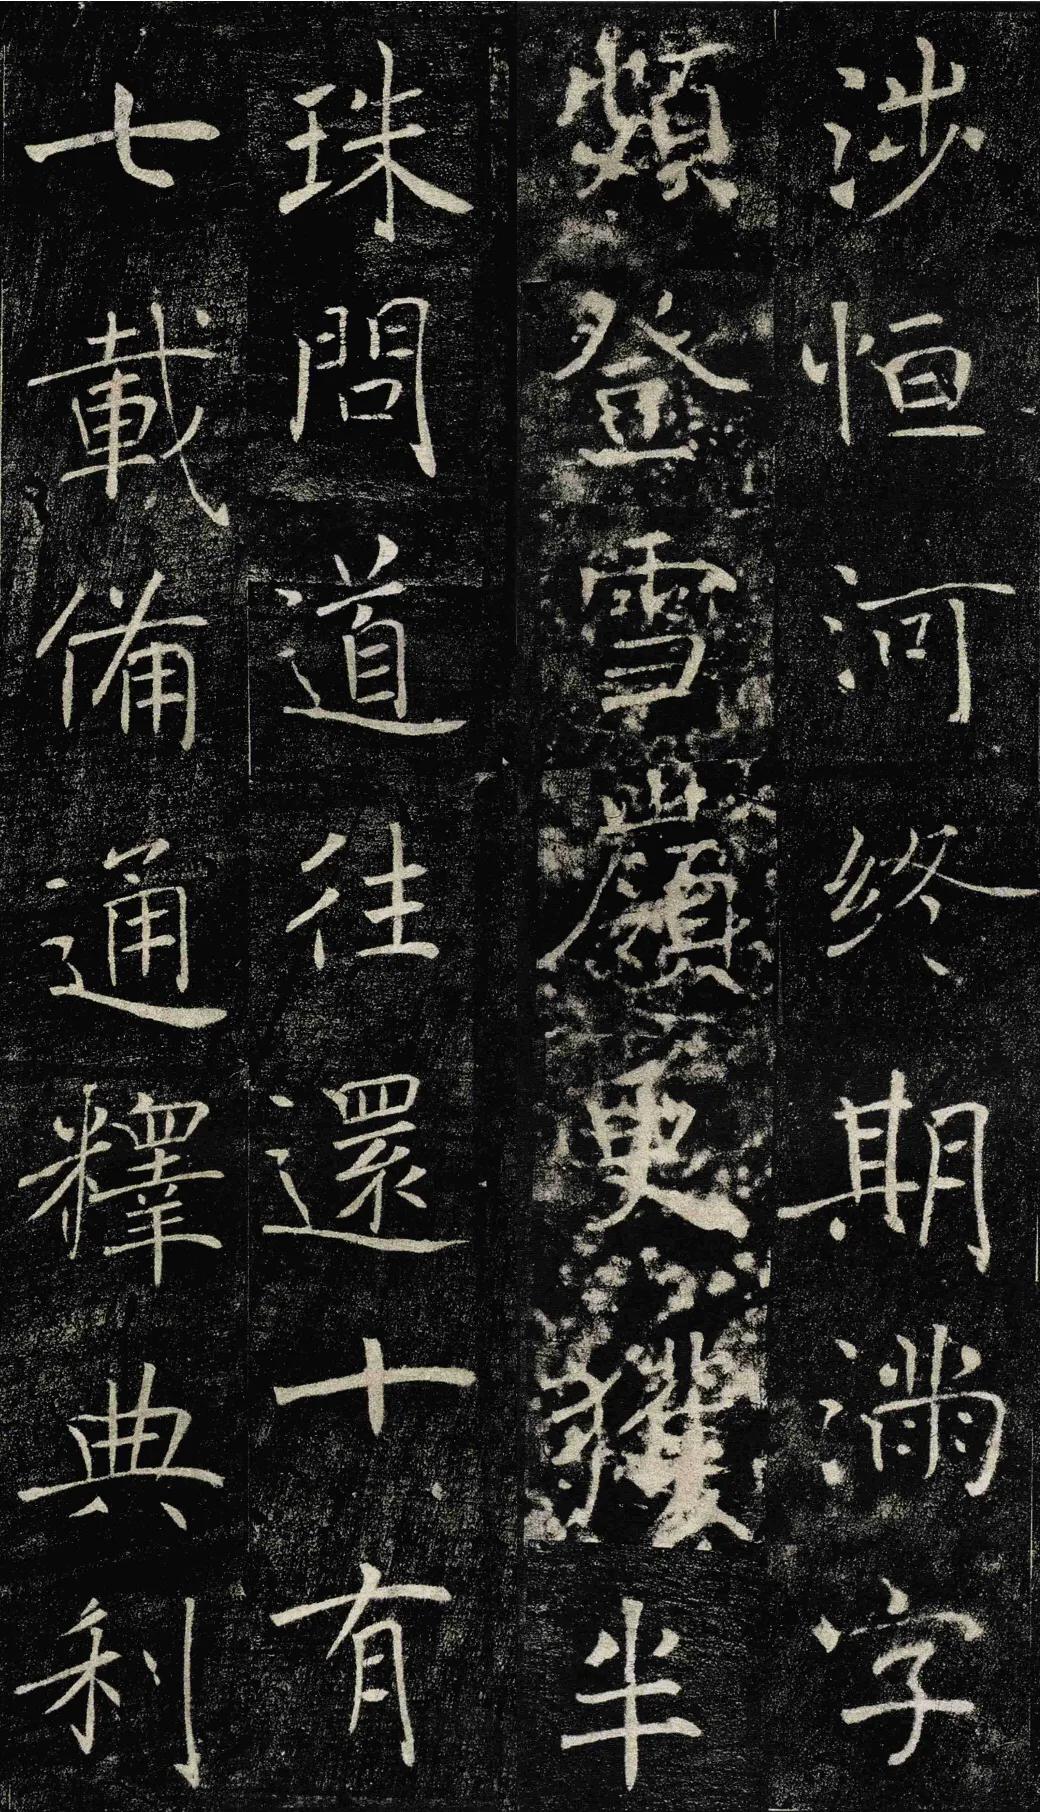 涉恒河終期滿字
頻登雪巘更獲半
珠問道往還十有
七載備通釋典利